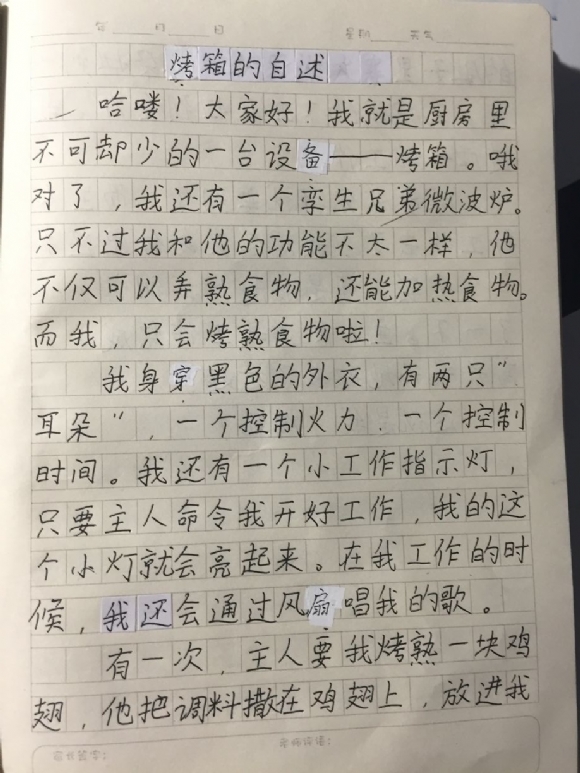 年 月 日 星期 天气
烤箱的自述
哈喽！大家好！我就是厨房里
不可却少的一台设备——烤箱。哦
对了，我还有一个孪生兄弟微波炉。
只不过我和他的功能不太一样，他
不仅可以弄熟食物，还能加热食物。
而我，只会烤熟食物啦！
我身穿黑色的外衣，有两只"
耳朵"，一个控制火力，一个控制
时间。我还有一个小工作指示灯，
只要主人命令我开好工作，我的这
个小灯就会亮起来。在我工作的时
候，我还会通过风扇唱我的歌。
有一次，主人要我烤熟一块鸡
翅，他把调料撒在鸡翅上，放进我
家长签字： 老师评语：